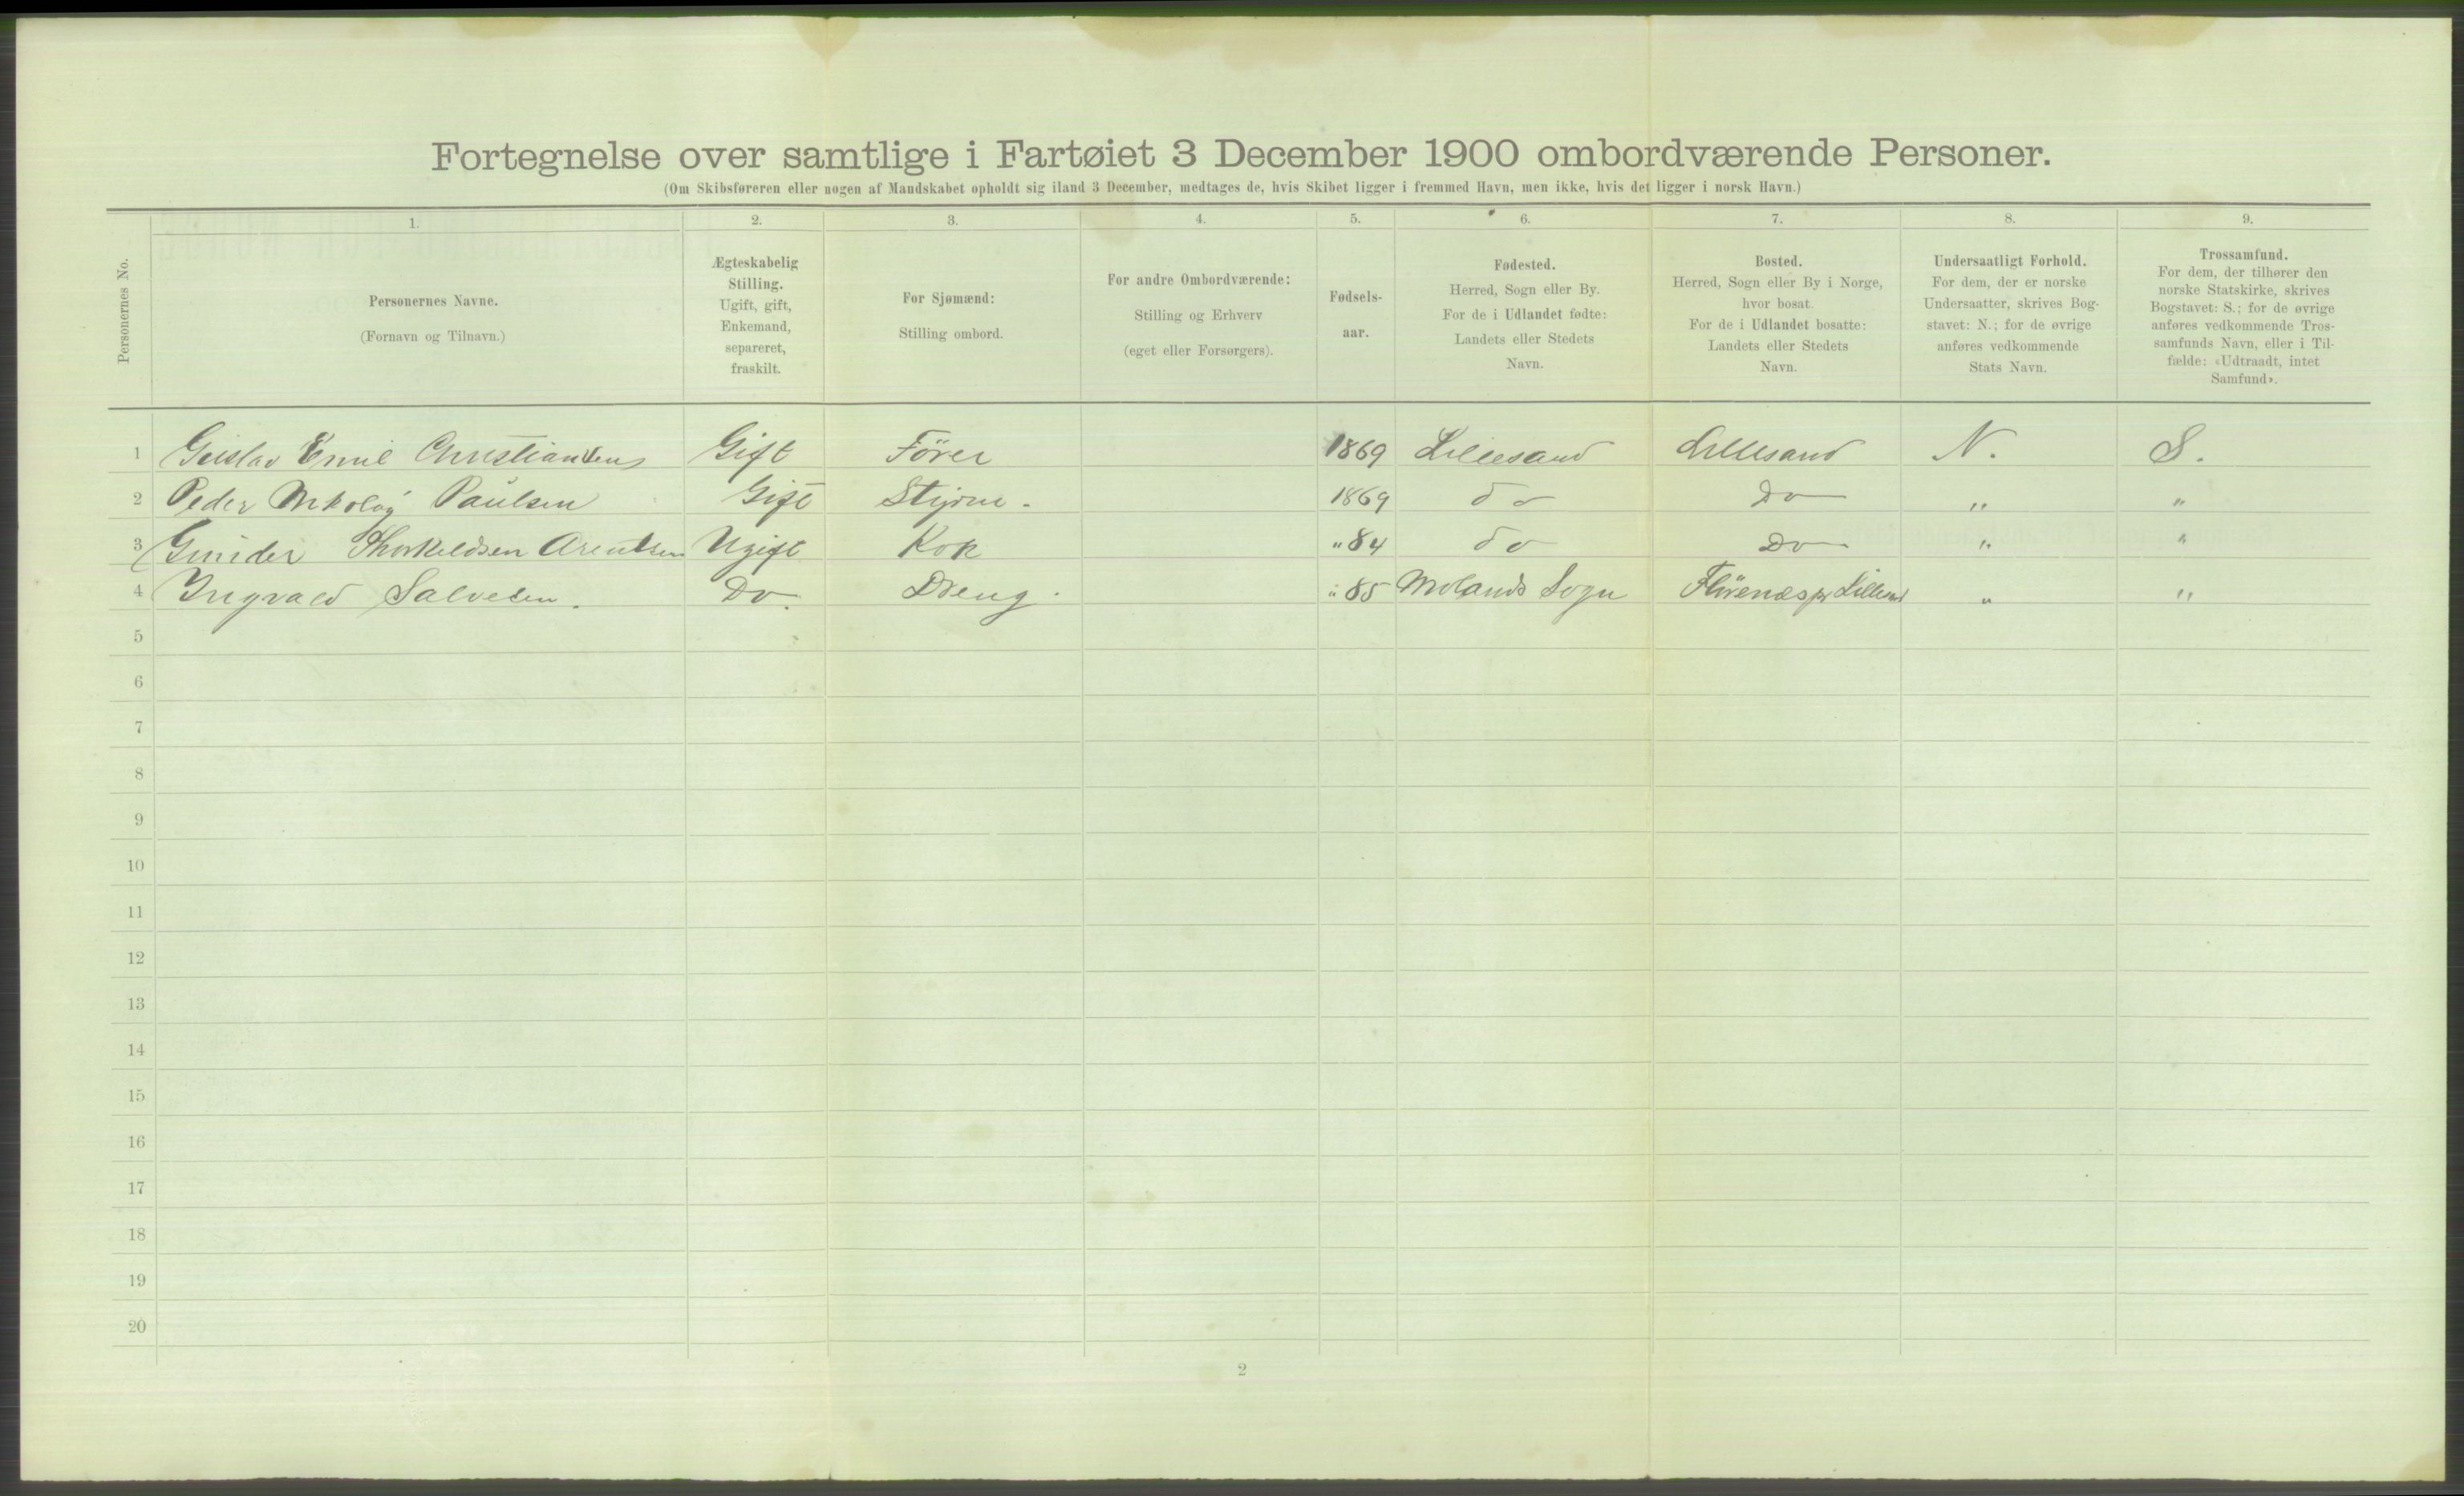 Fortegnelse over samtlige i Fartøiet 3 December 1900 ombordværende Personer.
(Om Skibsføreren eller nogen af Mandskabet opholdt sig iland 3 December, medtages de, hvis Skibet ligger i fremmed Havn, men ikke, hvis det ligger i norsk Havn.)
Personernes No.
1.
Personernes Navne.
(Fornavn og Tilnavn.)
2.
Ægteskabelig
Stilling.
Ugift, gift,
Enkemand,
separeret,
fraskilt.
3.
For Sjømænd:
Stilling ombord.
4.
For andre Ombordværende:
Stilling og Erhverv
(eget eller Forsørgers).
5.
Fødsels-
aar.
6.
Fødested.
Herred, Sogn eller By.
For de i Udlandet fødte:
Landets eller Stedets
Navn.
7.
Bosted.
Herred, Sogn eller By i Norge,
hvor bosat.
For de i Udlandet bosatte:
Landets eller Stedets
Navn.
8.
Undersaatligt Forhold.
For dem, der er norske
Undersaatter, skrives Bog-
stavet: N.; for de øvrige
anføres vedkommende
Stats Navn.
9.
Trossamfund.
For dem, der tilhører den
norske Statskirke, skrives
Bogstavet: S.; for de øvrige
anføres vedkommende Tros-
samfunds Navn, eller i Til-
fælde: «Udtraadt, intet
Samfund».
1 Emil Christiansen Gift Förer 1869 Lillesand Lillesand N. S.
2 Peder Nikolay Paulsen Gift Styrm. 1869 do Do " "
3 Gunder Thorkildsen Arentsen Ugift Kok " 84 do Do " "
4 Ingvald Salvesen. Do. Dreng. " 85 Molands Sogn pr Lillesand " "
5
6
7
8
9
10
11
12
13
14
15
16
17
18
19
20
2